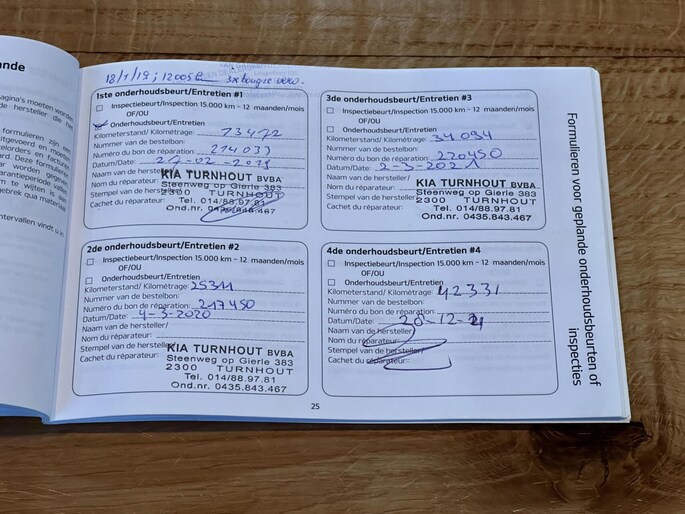 ande
agina's moeten worden
de hersteller die het
formulieren zijn een
itgevoerd en moeten
garantieperiode vallen
m te wijten is aan
gebrek qua materiaal
ntervallen vindt u in
18/1/19 ; 12005
1ste onderhoudsbeurt/Entretien #1
Inspectiebeurt/Inspection 15.000 km - 12 maanden/mois
OF/OU
Onderhoudsbeurt/Entretien
Kilometerstand/ Kilométrage: 13472
Nummer van de bestelbon:
Numéro du bon de réparation: 214033
Datum/Date: 27-02-2019
Naam van de hersteller/
Nom du réparateur:
Stempel van de hersteller/
Cachet du réparateur:
KIA TURNHOUT BVBA
Steenweg op Gierle 383
2300 TURNHOUT
Tel. 014/88.97.81
Ond.nr. 0435.843.467
2de onderhoudsbeurt/Entretien #2
Inspectiebeurt/Inspection 15.000 km - 12 maanden/mois
OF/OU
Onderhoudsbeurt/Entretien
Kilometerstand/ Kilométrage: 25311
Nummer van de bestelbon:
Numéro du bon de réparation: 217450
Datum/Date: 4-3-2020
Naam van de hersteller/
Nom du réparateur:
Stempel van de hersteller/
Cachet du réparateur:
KIA TURNHOUT BVBA
Steenweg op Gierle 383
2300 TURNHOUT
Tel. 014/88.97.81
Ond.nr. 0435.843.467
3de onderhoudsbeurt/Entretien #3
Inspectiebeurt/Inspection 15.000 km - 12 maanden/mois
OF/OU
Onderhoudsbeurt/Entretien
Kilometerstand/ Kilométrage: 34094
Nummer van de bestelbon:
Numéro du bon de réparation: 220450
Datum/Date: 2-3-2021
Naam van de hersteller/
Nom du réparateur:
Stempel van de hersteller/
Cachet du réparateur:
KIA TURNHOUT BVBA
Steenweg op Gierle 383
2300 TURNHOUT
Tel. 014/88.97.81
Ond.nr. 0435.843.467
4de onderhoudsbeurt/Entretien #4
Inspectiebeurt/Inspection 15.000 km - 12 maanden/mois
OF/OU
Onderhoudsbeurt/Entretien
Kilometerstand/ Kilométrage: 42331
Nummer van de bestelbon:
Numéro du bon de réparation:
Datum/Date: 20-12-21
Naam van de hersteller/
Nom du réparateur:
Stempel van de hersteller/
Cachet du réparateur:
Formulieren voor geplande onderhoudsbeurten of
inspecties
25